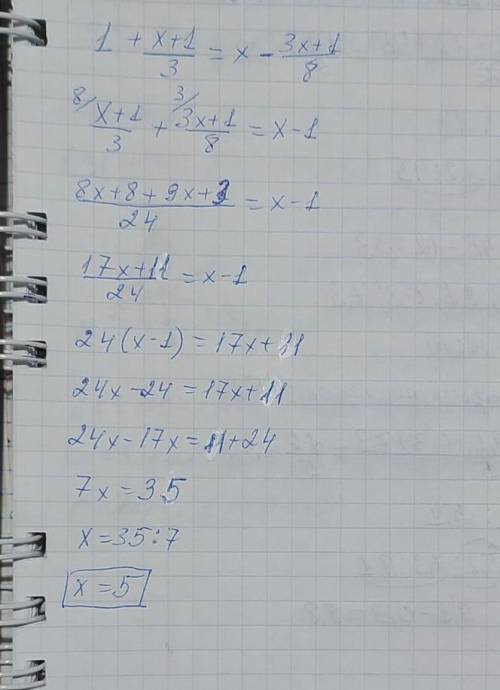 1 + (x+1)/3 = x - (3x+1)/8
8/ (x+1)/3 + 3/ (3x+1)/8 = x-1
(8x+8+9x+3)/24 = x-1
(17x+11)/24 = x-1
24(x-1)=17x+11
24x-24=17x+11
24x-17x=11+24
7x=35
x=35:7
x=5